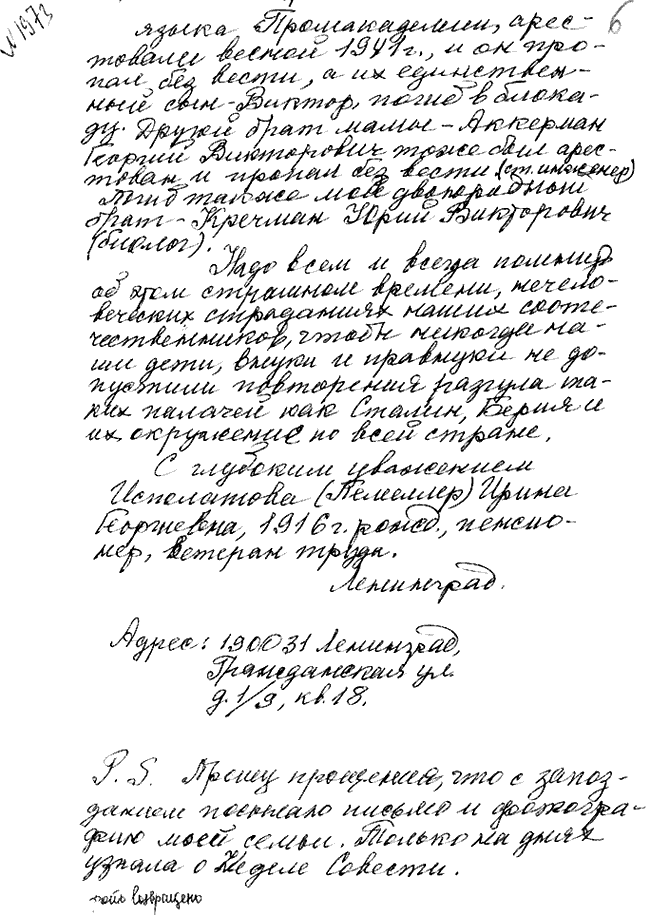 N 1973
6
языка Промакадемии, арес-
товали весной 1941 г., и он про-
пал без вести, а их единствен-
ный сын - Виктор, погиб в блока-
ду. Другой брат мамы - Аккерман
Георгий Викторович тоже был арес-
тован и пропал без вести (ст. инженер)
Погиб также мой двоюродный
брат - Кречман Юрий Викторович
(биолог).
Надо всем и всегда помнить
об этом страшном времени, нечело-
веческих страданиях наших сооте-
чественников, чтобы никогда на-
ши дети, внуки и правнуки не до-
пустили повторения разгула та-
ких палачей как Сталин, Берия и
их окружение по всей стране.
С глубоким уважением
Исполатова () Ирина
Георгиевна, 1916 г. рожд., пенсио-
нер, ветеран труда.
Ленинград.
Адрес: 190031 Ленинград,
Гражданская ул.
д. 1/9, кв. 18.
P.S. Прошу прощения, что с запоз-
данием посылаю письмо и фотогра-
фию моей семьи. Только на днях
узнала о Неделе Совести.
фото возвращено